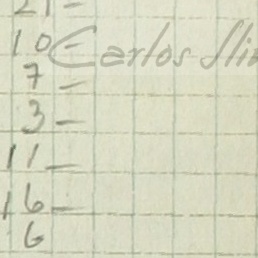 21 -
10 -
Carlos Sli
7 -
3 -
11 -
16 -
6